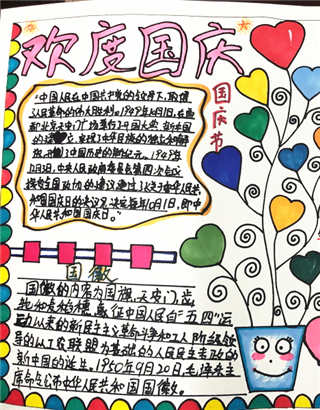 欢度国庆
国庆节
"中国人民在中国共产党的领导下,取得
人民革命的伟大胜利。1949年10月1日,在首
都北京天安门广场举行了开国大典,
,实现了中华民族的独立和解
放,开中国历史的新纪元。1949年
12月3日,中央人民政府委员会第四次会议
接受全国政协的建议,通过了《关于中华人民共
和国国庆日的决议》,决定每年10月1日,即中
华人民共和国国庆日。"
国徽
国徽的内容为国旗、天安门、齿
轮和麦稻穗,象征中国人民自"五四"运
动以来的新民主主义革命斗争和工人阶级领
导的以工农联盟为基础的人民民主专政的
新中国的诞生。1950年9月20日,毛泽东主
席命令公布中华人民共和国国徽。